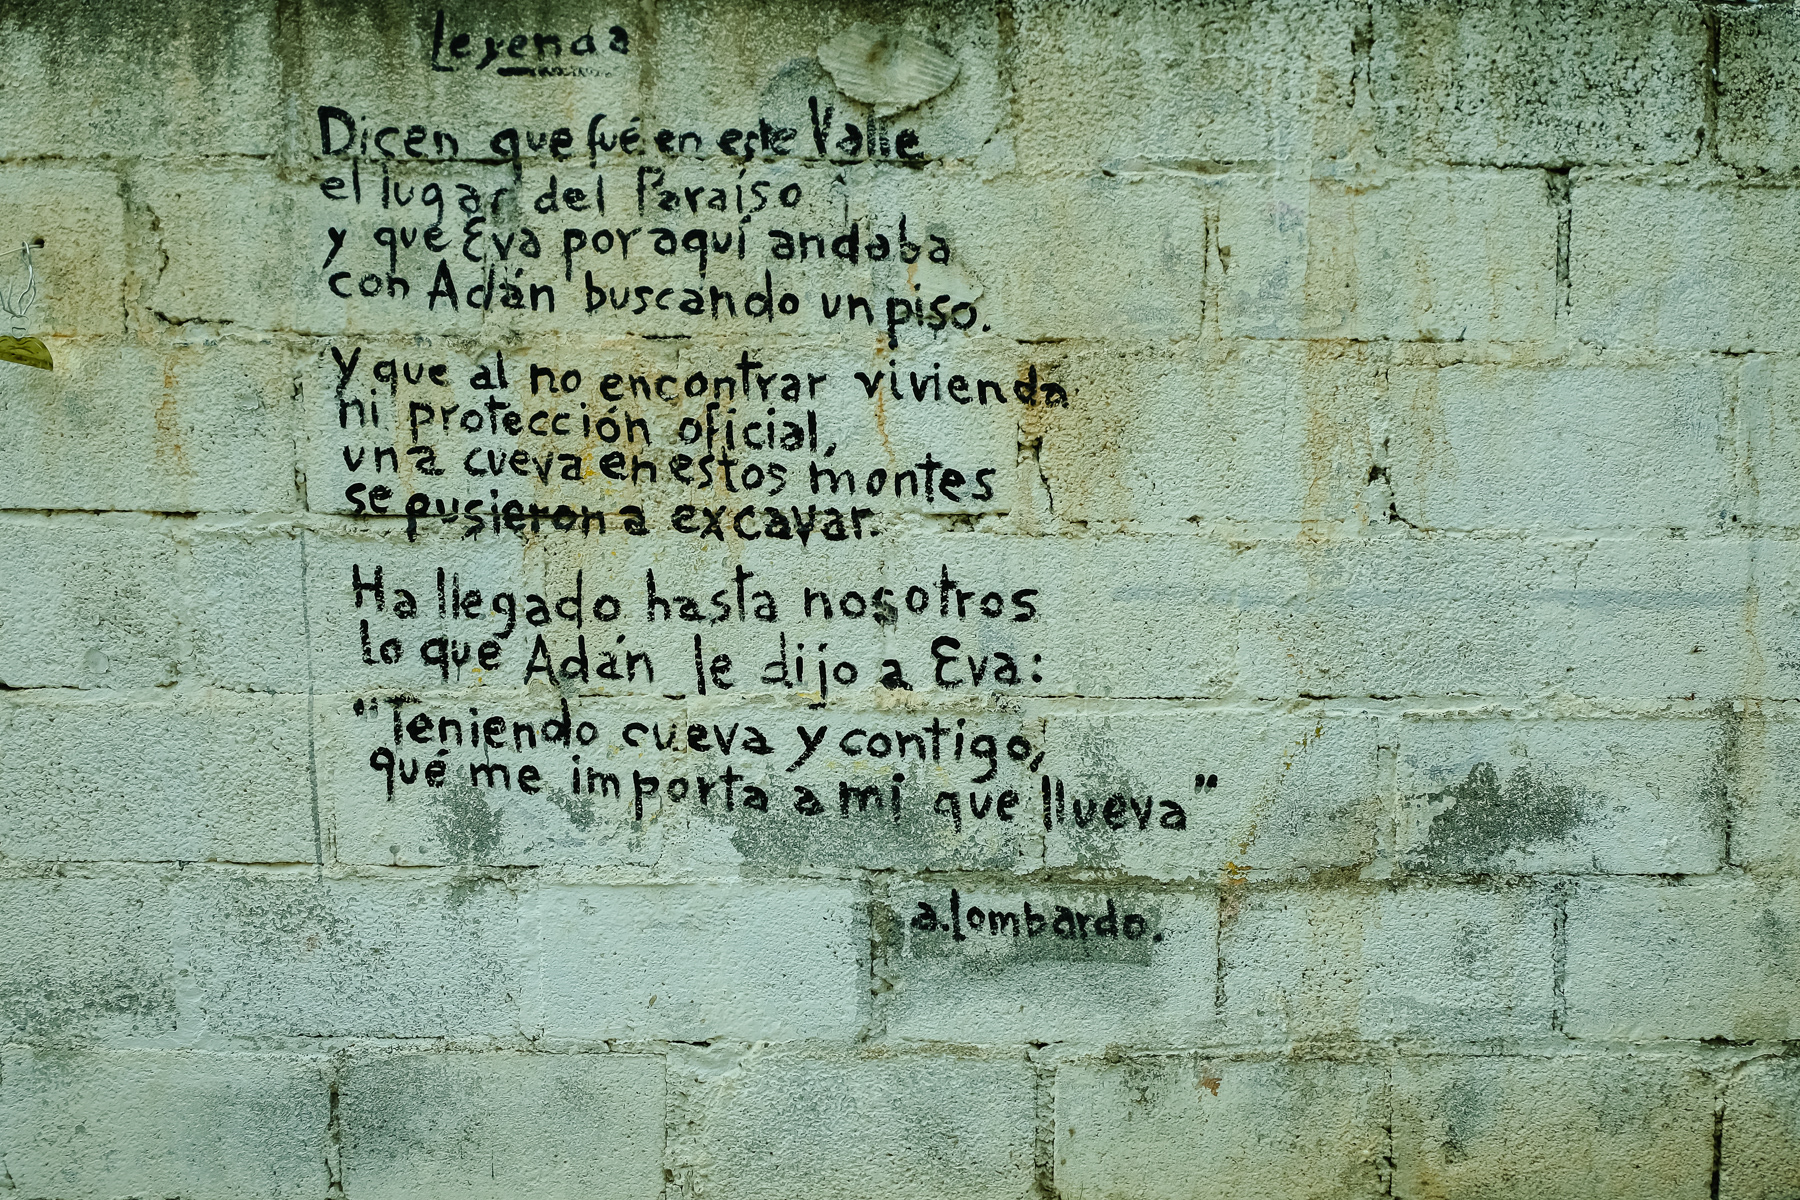 Leyenda
Dicen que fué en este Valle
el lugar del Paraíso
y que Eva por aquí andaba
con Adán buscando un piso.
Y que al no encontrar vivienda
ni protección oficial,
una cueva en estos montes
se pusieron a excavar.
Ha llegado hasta nosotros
lo que Adán le dijo a Eva:
"Teniendo cueva y contigo,
qué me importa a mi que llueva"
a.lombardo.